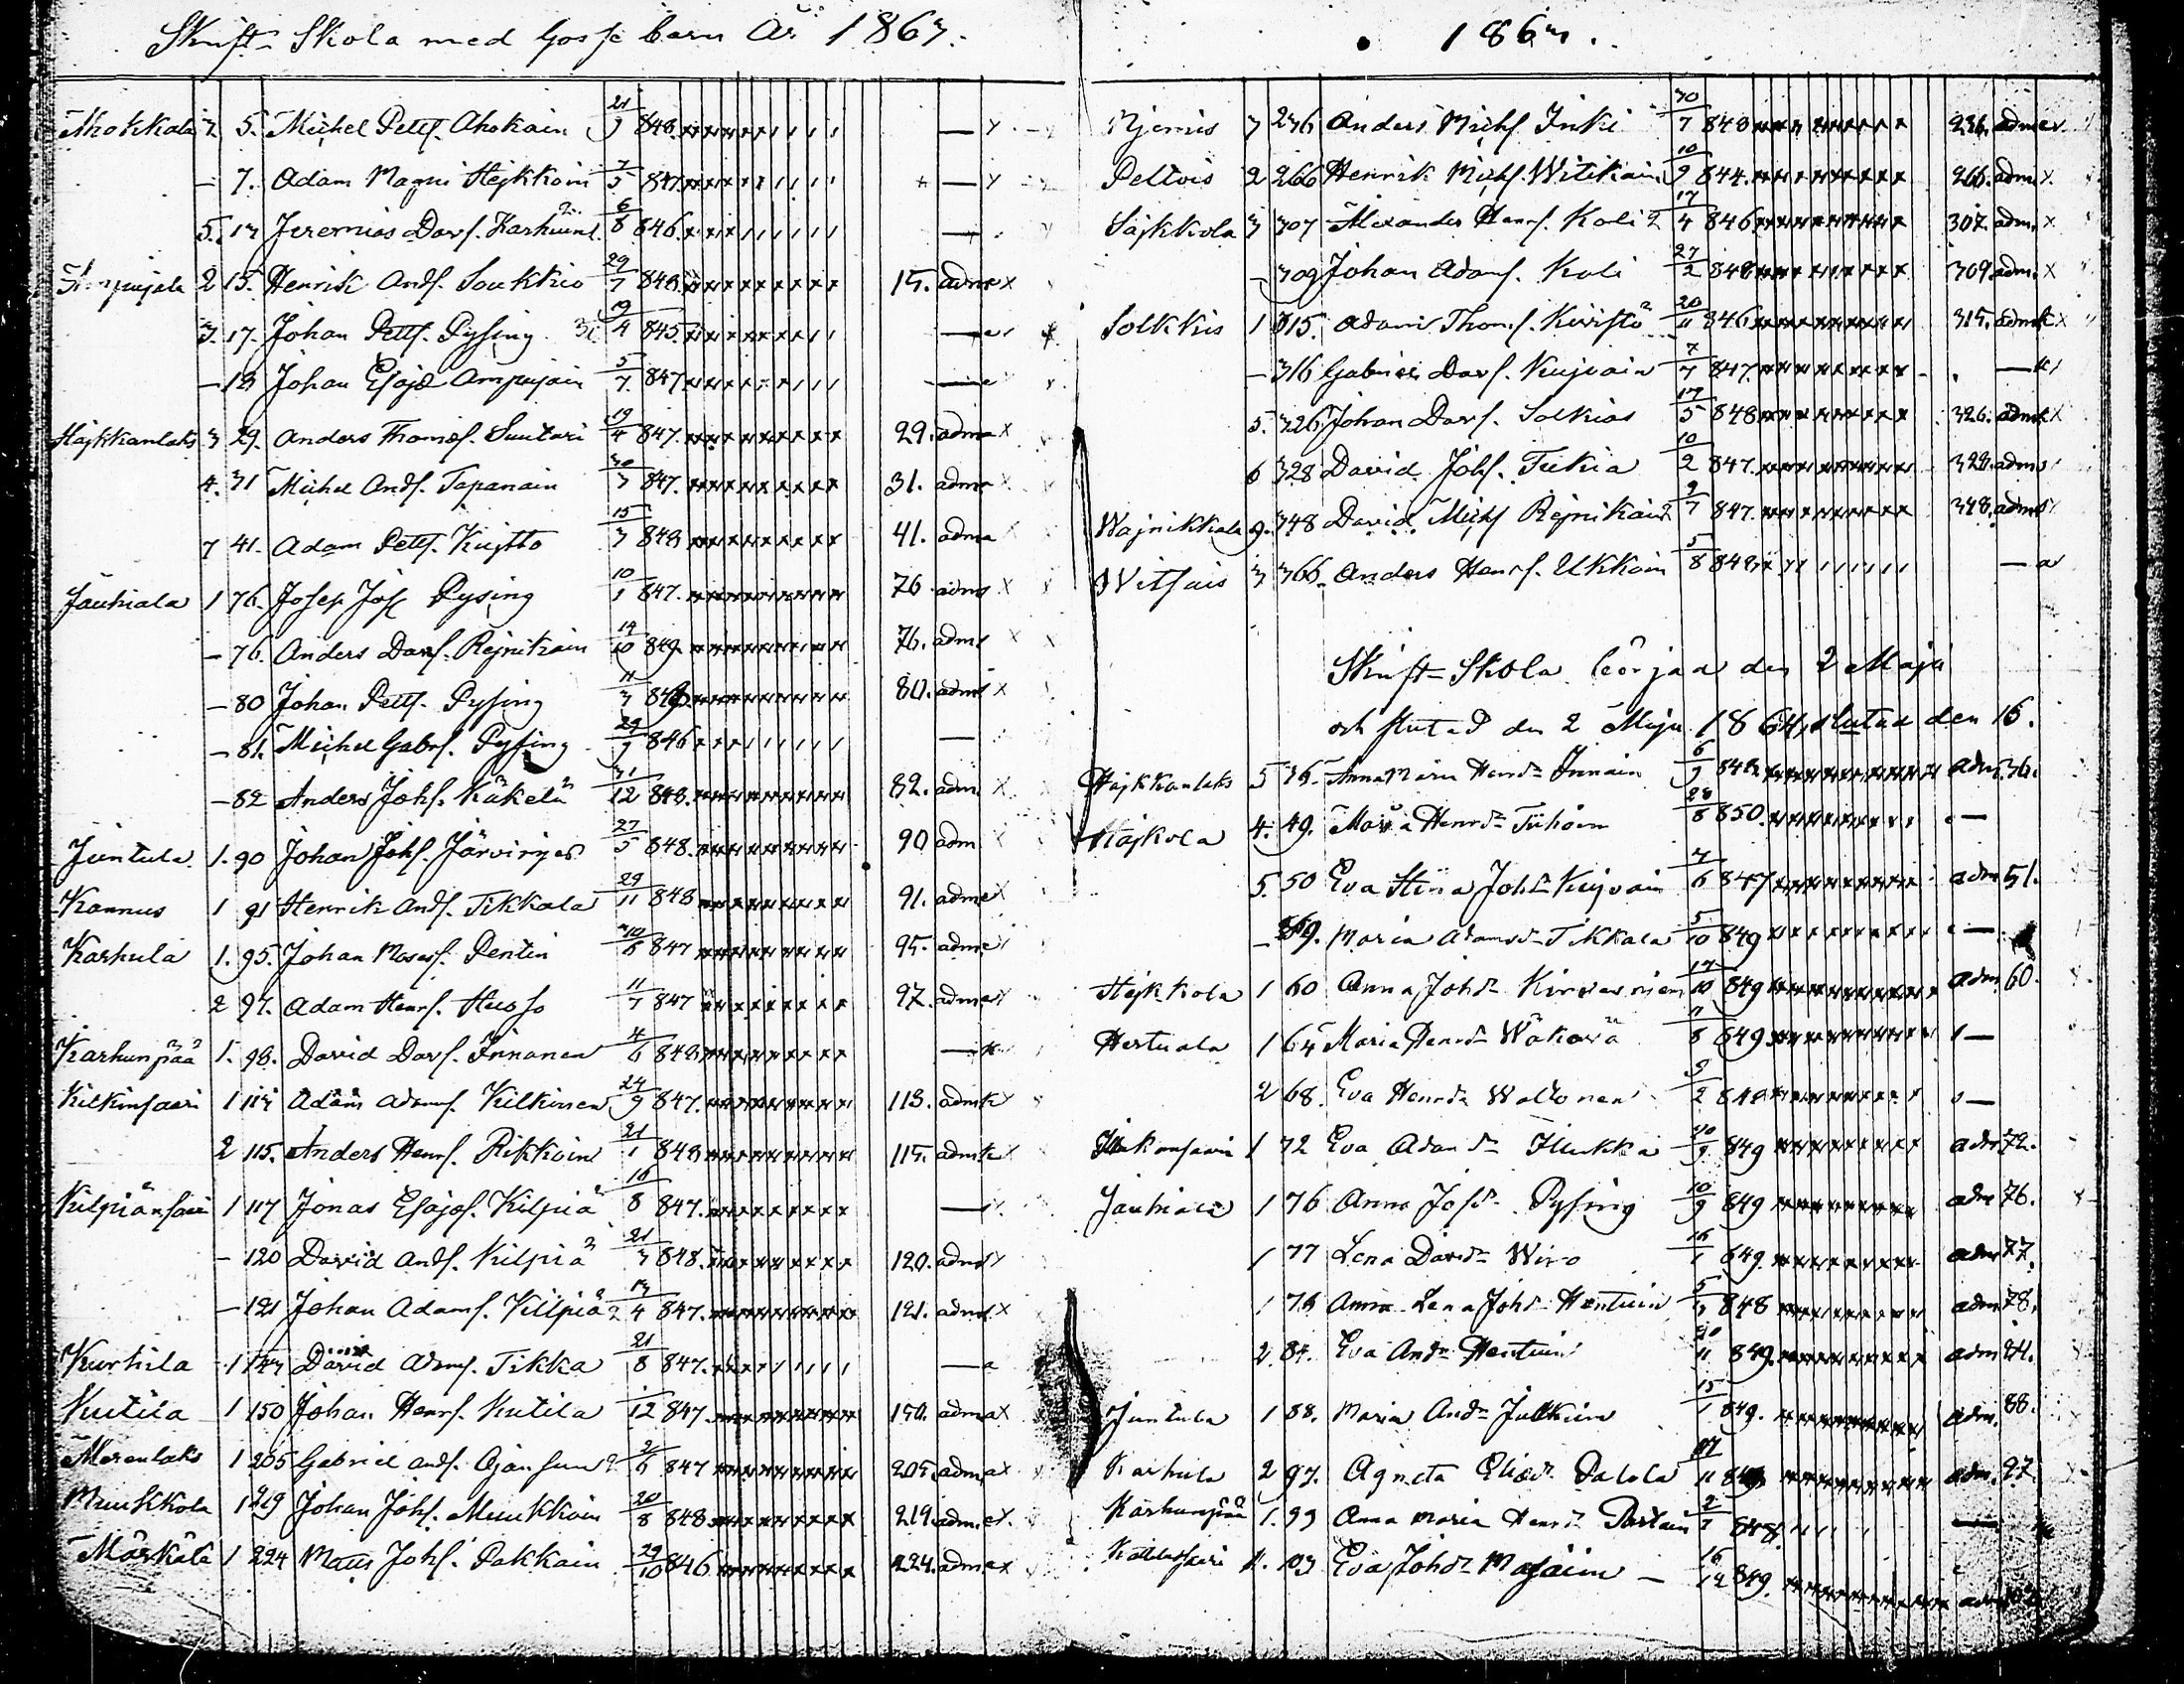 Skrift-Skola med Gosse barn År 1863.
Ahokkala 2 5. Michel Petts. Ahokain 21/9 848.
— 7. Adam Magni Hejkkoin 7/5 847
5. 13 Jeremias Davs. Karhuin 6/8 846.
2 15. Henrik Ands. Soukkio 29/7 848. 15. adm x
3. 17. Johan Petts. Pysing 19/4 845.
— 18 Johan Esajæ Ampujain 5/7 847
Hajkkanlaks 3 29. Anders Thomæs. Suutari 19/4 847. 29. adm x
4. 31 Michel Ands. Tapanain 30/3 847. 31. adm
7 41. Adam Petts. Kujtto 15/3 848 41. adm
Jäuhiala 1 76. Josep Jos Pysing 10/1 847. 76 adm x
— 76. Anders Davs. Rejnikain 19/10 849. 76. adm x
— 80 Johan Petts. Pysing 11/3 848 80. adm x
— 81. Michel Gabrs. Pysing 29/9 846 —
— 82 Anders Johs. Käkelä 31/12 848. 82. adm. x
Juntula 1. 90 Johan Johs. Järvinjes 27/5 848. 90 adm
Kannus 1 91 Henrik Ands. Tikkala 29/11 848 91. adm x
Karhula 1. 95. Johan Moses. Pentin 10/6 847 95. adm
2 97. Adam Henrs. Husso 11/7 847 97. adm
Karhunpää 1. 98. David Davs. Innanen 4/6 848
Kilkinsaari 1 113 Adam Adams. Kilkinen 24/9 847. 113. adm
2 115. Anders Henrs. Rikkoin 21/1 848 115. adm
Kilpiänsaari 1 117 Jonas Esajæs. Kilpiä 16/8 847. —
— 120 David Ands. Kilpiä 21/3 848. 120. adm
— 121 Johan Adams. Kilpiä 13/4 847. 121. adm x
Kurkila 1 143 David Adams. Tikka 21/8 847. — a
Kutila 1 150 Johan Henrs. Kutila 1/12 847 150. adm x
Merenlaks 1 205 Gabriel Ands. Ojansuu 2/6 847 205. adm x
Muukkola 1 219 Johan Johs. Muukkoin 20/8 848 219. adm x
Märkälä 1 224 Matts Johs. Pakkain 29/10 846 224. adm x
1863.
Njemis 3 236 Anders Michs. Inki 30/7 848 236. adm
Peltois 2 266 Henrik Michs. Witikain 10/9 844. 266. adm x.
Säjkkola 3 307 Alexander Henrs. Koli 17/4 846 307. adm. x
— 309 Johan Adams. Koli 27/2 848 309 adm. x
Solkkis 1 315. Adam Thoms. Kiristö 20/11 846 315. adm x
— 316 Gabriel Davs. Kujvain 7/7 847. —
5. 326 Johan Davs. Solkias 17/5 848 326. adm x
6 328 David Johs. Tukia 10/2 847. 328. adm
Wajnikkala 9. 348 David Michs Rejnikain 9/7 847. 348. adm
Witsais 3 366. Anders Henrs. Ukkoin 5/8 848 — a
Skrift-Skola börjaa den 2 Maji
och slutad den 2 Maju 1864, slutad den 16.
Hajkkanlaks 5 36. Anna Maria Henrdr Innain 6/9 848 adm. 36.
Hajkola 4. 49. Maria Henrdr Tuhoin 28/8 850. —
5. 50 Eva Stina Johdr Kujvain 7/6 847 adm 51.
— 59. Maria Adamsdr Tikkala 5/10 849 —
Hejkkola 1 60 Anna Johdr 17/10 849 adm 60.
Hertuala 1 64 Maria Henrdr Wäkevä 11/8 849. —
2 68. Eva Henrdr Waltonen 9/2 848 —
1 72 Eva Adamdr Hukka 20/9 849 adm 72.
Jäuhiala 1 76 Anna Josdr Pysing 10/9 849 adm 76.
1 77 Lena Davidr Wiro 16/1 849. adm 77.
1 78 Anna Lena Johdr Hentuin 5/3 848 adm 78.
2. 84. Eva Anddr Hentuin 20/11 849. adm 84.
Juntula 1 88. Maria Anddr Julkuin 15/1 849. adm. 88.
Karhula 2 97. Agneta Eliædr Palola 848 adm. 97.
Karhunpää 1. 99 Anna Maria Henrdr Partain 2/7 848. —
103 Eva Johdr — 16/12 849. adm 103